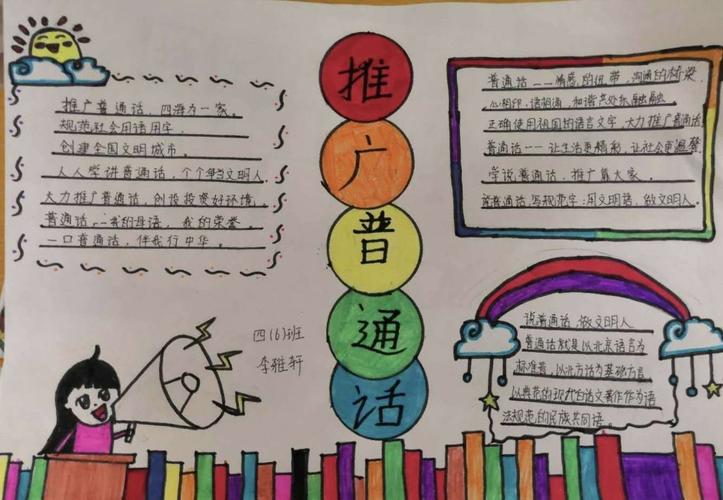 推广普通话
推广普通话，四海为一家。
规范社会用语用字。
创建全国文明城市。
人人学讲普通话，个个争当文明人
大力推广普通话，创设投资好环境。
普通话——我的母语，我的荣誉。
一口普通话，伴我行中华。
普通话——情感的纽带，沟通的桥梁
心相印，语相通，和谐共处乐融融
正确使用祖国的语言文字，大力推广普通话
普通话——让生活更精彩，让社会更温馨
学说普通话，推广靠大家。
普通话，写规范字：用文明语，做文明人。
四(6)班
李雅轩
说普通话，做文明人
普通话就是以北京语言为
标准音，以北方话为基础方言
以典范的现代白话文著作作为语
法规范的民族共同语。